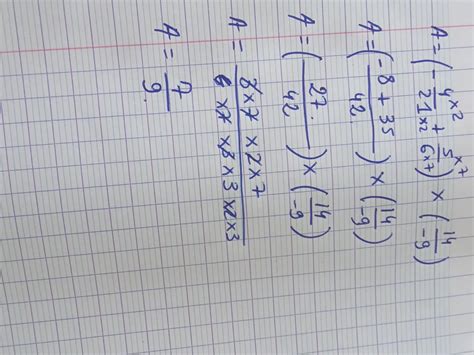 A = (- 4×2/21×2 + 5×7/6×7) × (14/-9)
A = (-8 + 35/42.) × (14/-9)
A = (27./42) × (14/-9)
A = 3×7 ×2×7/6 ×7 ×3×3×2×3
A = 7/9.